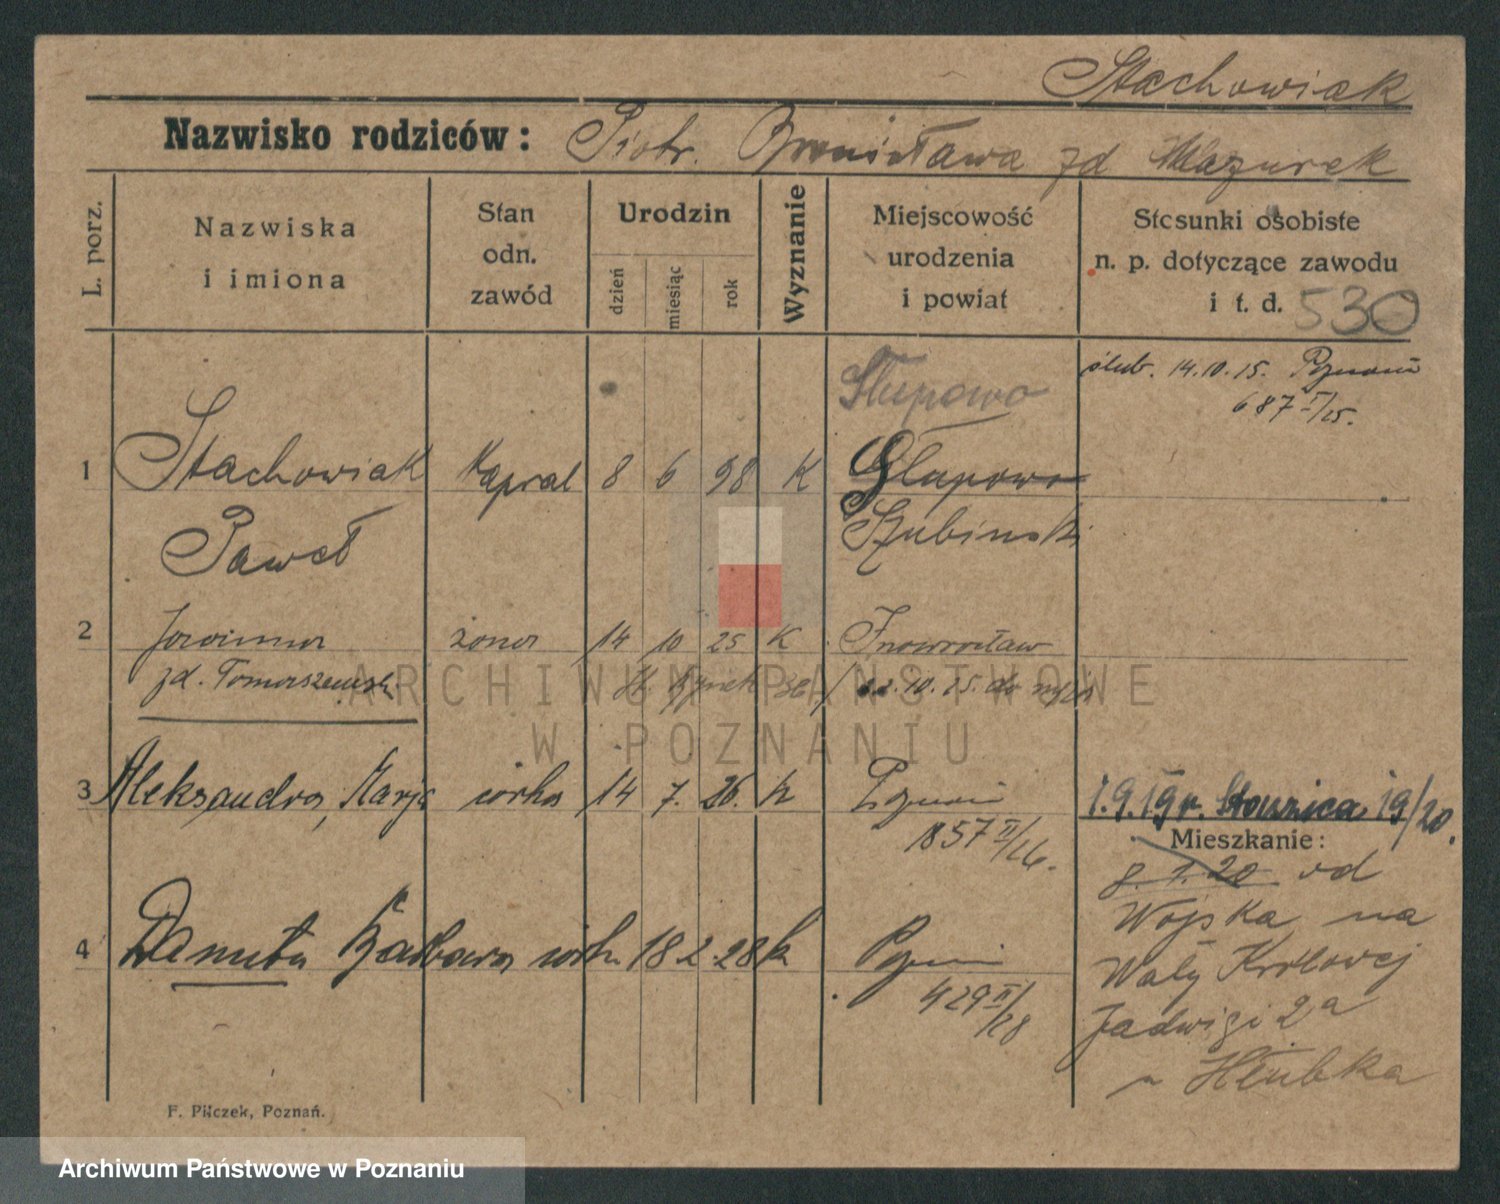 Stachowiak
Nazwisko rodziców: Piotr. Bronisława zd Mazurek
L. porz.
Nazwiska i imiona
Stan odn. zawód
Urodzin
dzień
miesiąc
rok
Wyznanie
Miejscowość urodzenia i powiat
Stosunki osobiste n. p. dotyczące zawodu i t. d. 530
ślub. 14.10.15. Poznań
687 I/15.
Słupowo
1 Stachowiak Kapral 8 6 98 K Słupowo
Paweł Szubinski
2 Joanna żona 14 10 25 K Inowrocław
zd. Tomaszewska
3 Aleksandra, Marja córka 14 7. 26. k Poznań
857 II/26.
1.9.19 r. Stoisnica 19/20.
Mieszkanie:
8.1.20 od
Wojska na
Wały Królowej
Jadwigi 2a
u Hłubka
4 Danuta Barbara córk. 18 2 28 k Poznań
429 II/28
F. Pilczek, Poznań.
ARCHIWUM PAŃSTWOWE
W POZNANIU
Archiwum Państwowe w Poznaniu